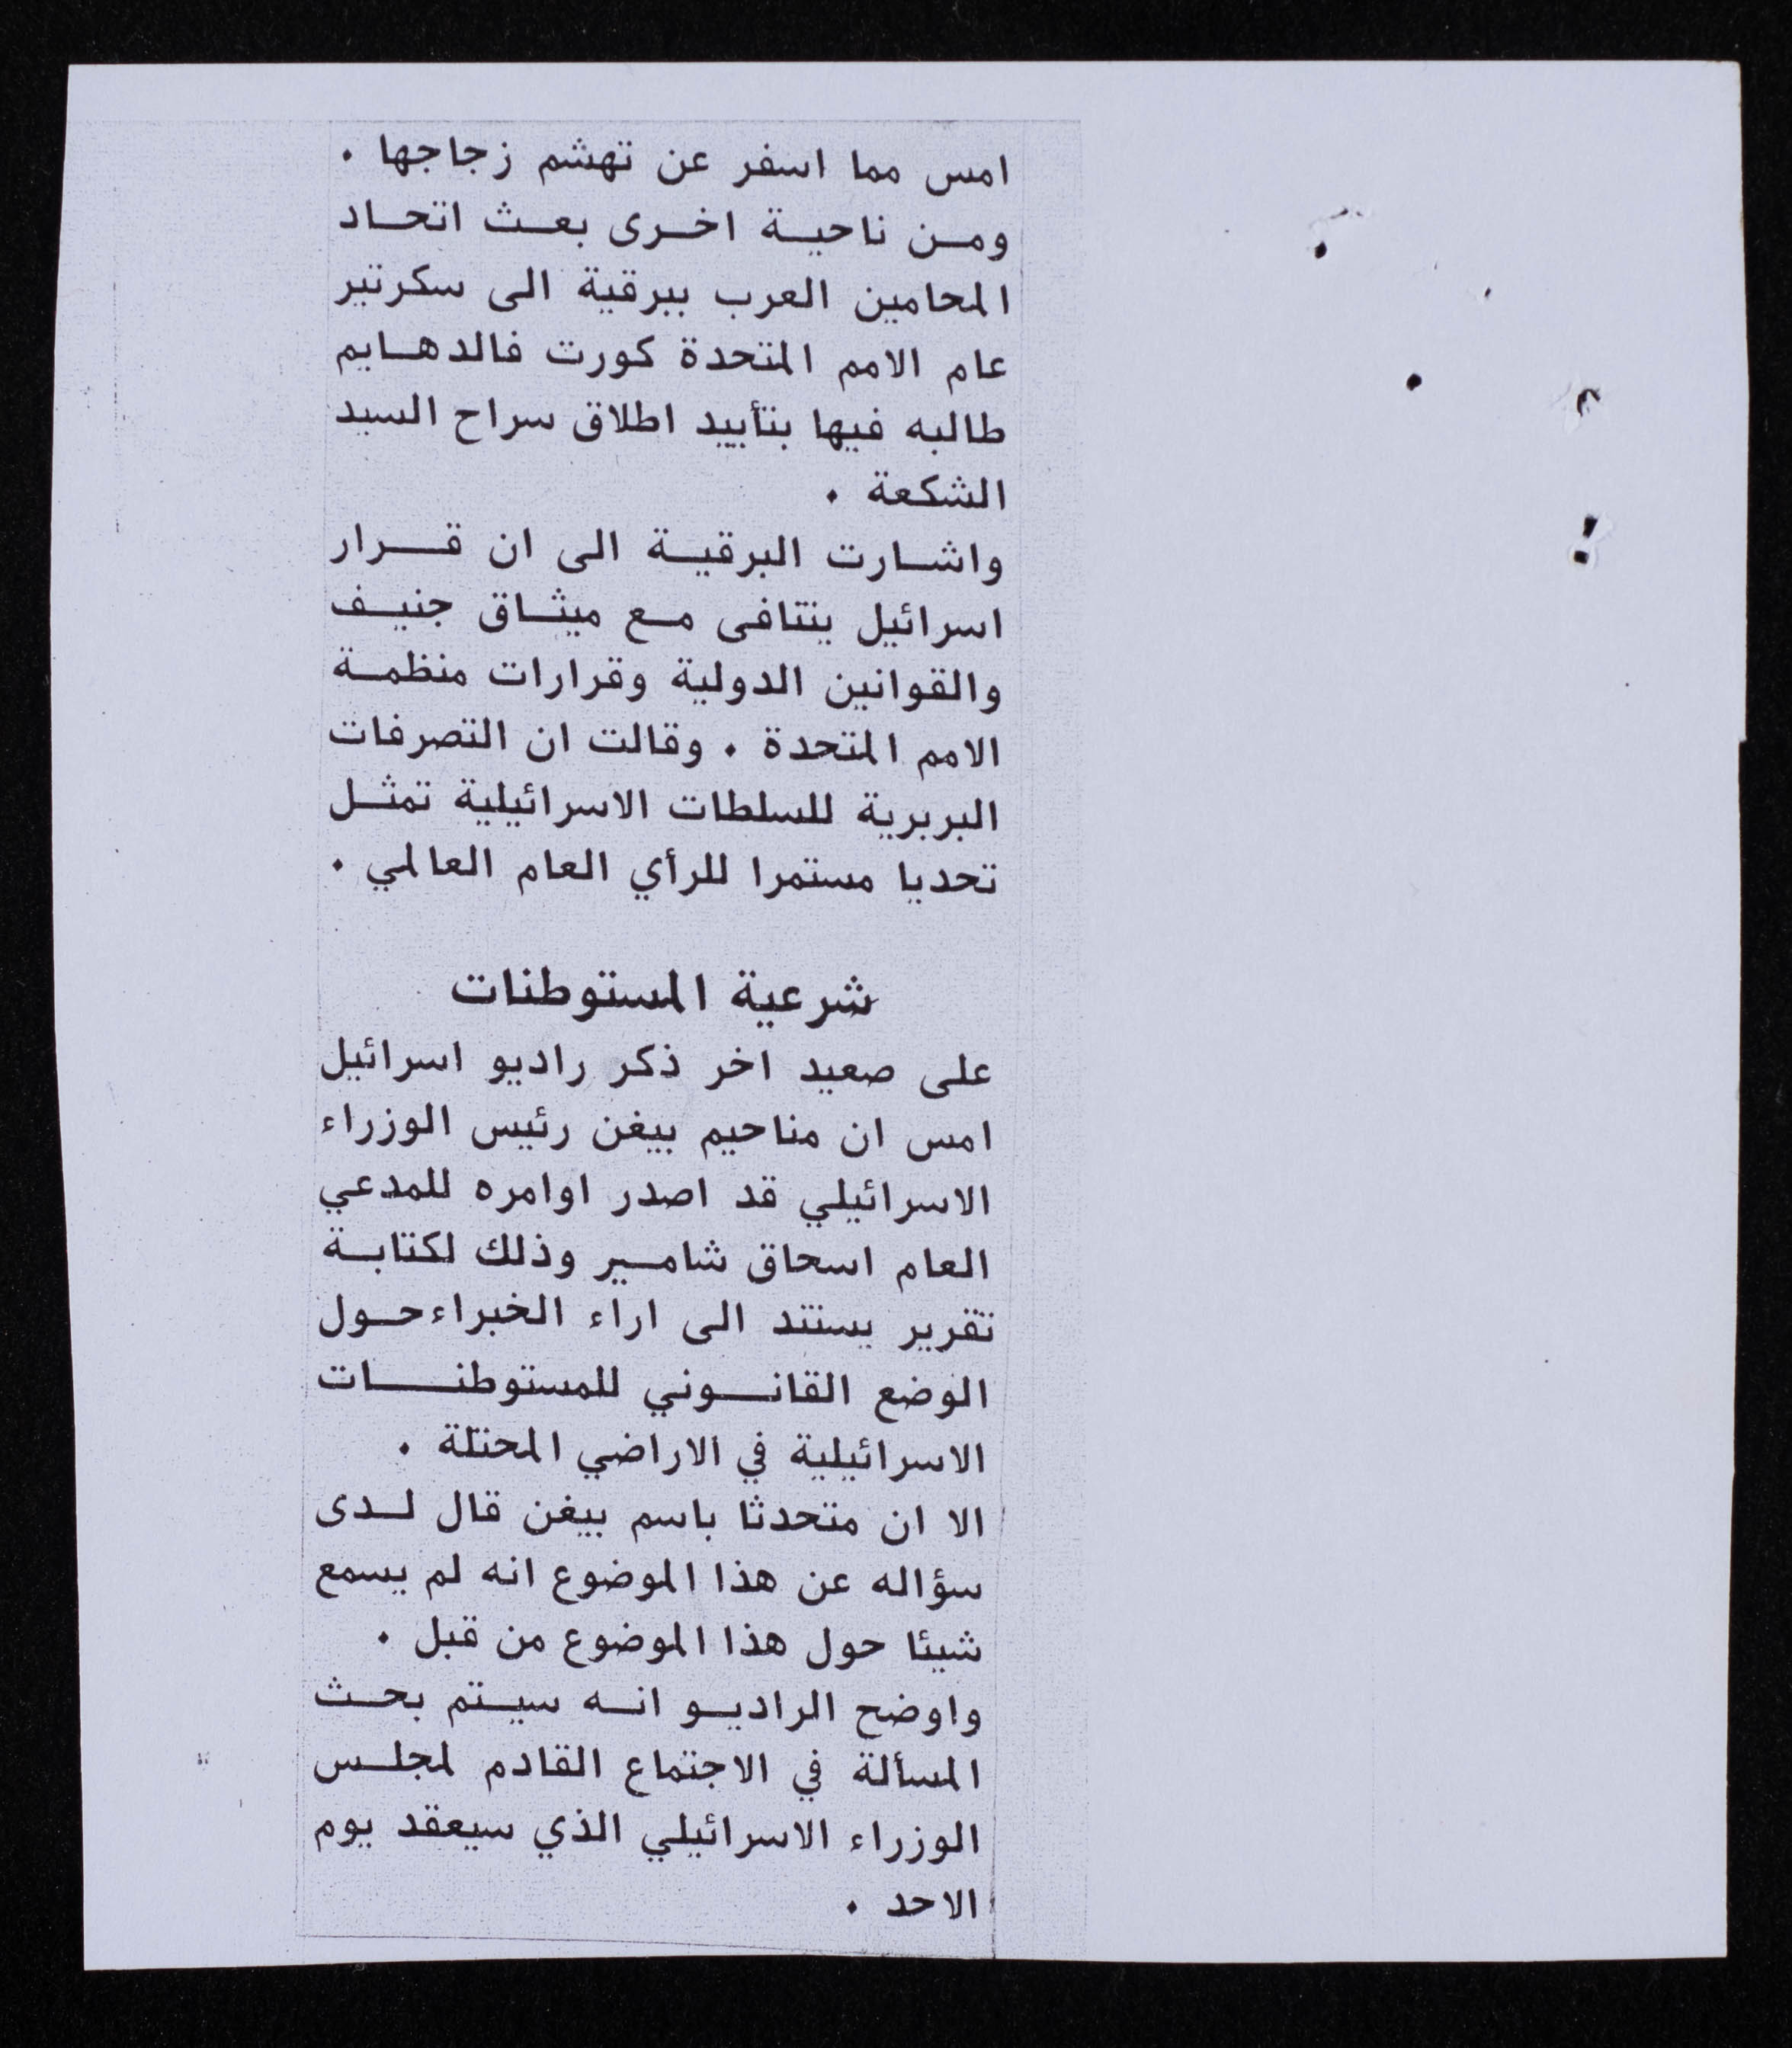 امس مما اسفر عن تهشم زجاجها .
ومن ناحية اخرى بعث اتحاد
المحامين العرب ببرقية الى سكرتير
عام الامم المتحدة كورت فالدهايم
طالبه فيها بتأييد اطلاق سراح السيد
الشكعة .
واشارت البرقية الى ان قرار
اسرائيل يتنافى مع ميثاق جنيف
والقوانين الدولية وقرارات منظمة
الامم المتحدة . وقالت ان التصرفات
البربرية للسلطات الاسرائيلية تمثل
تحديا مستمرا للرأي العام العالمي .
شرعية المستوطنات
على صعيد اخر ذكر راديو اسرائيل
امس ان مناحيم بيغن رئيس الوزراء
الاسرائيلي قد اصدر اوامره للمدعي
العام اسحاق شامير وذلك لكتابة
تقرير يستند الى اراء الخبراء حول
الوضع القانوني للمستوطنات
الاسرائيلية في الاراضي المحتلة .
الا ان متحدثا باسم بيغن قال لدى
سؤاله عن هذا الموضوع انه لم يسمع
شيئا حول هذا الموضوع من قبل .
واوضح الراديو انه سيتم بحث
المسألة في الاجتماع القادم لمجلس
الوزراء الاسرائيلي الذي سيعقد يوم
الاحد .